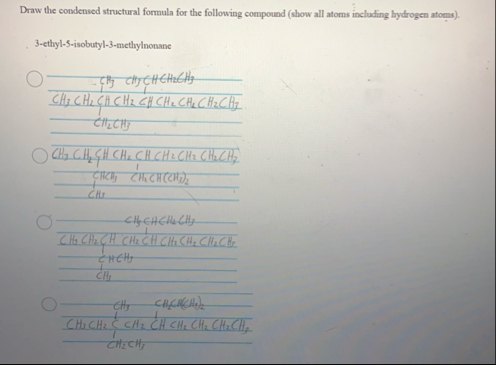 Draw the condensed structural formula for the following compound (show all atoms including hydrogen atoms).
3-ethyl-5-isobutyl-3-methylnonane
CH3 CH3CHCH2CH3
CH3CH2CHCH2CHCH2CH2CH2CH3
CH2CH3
CH3CH2CHCH2CHCH2CH2CH2CH3
CHCH3 CH2CH(CH3)2
CH3
CH3CHCH2CH3
CH3CH2CHCH2CHCH2CH2CH2CH3
CHCH3
CH3
CH3 CH2CH(CH3)2
CH3CH2CCH2CHCH2CH2CH2CH3
CH2CH3